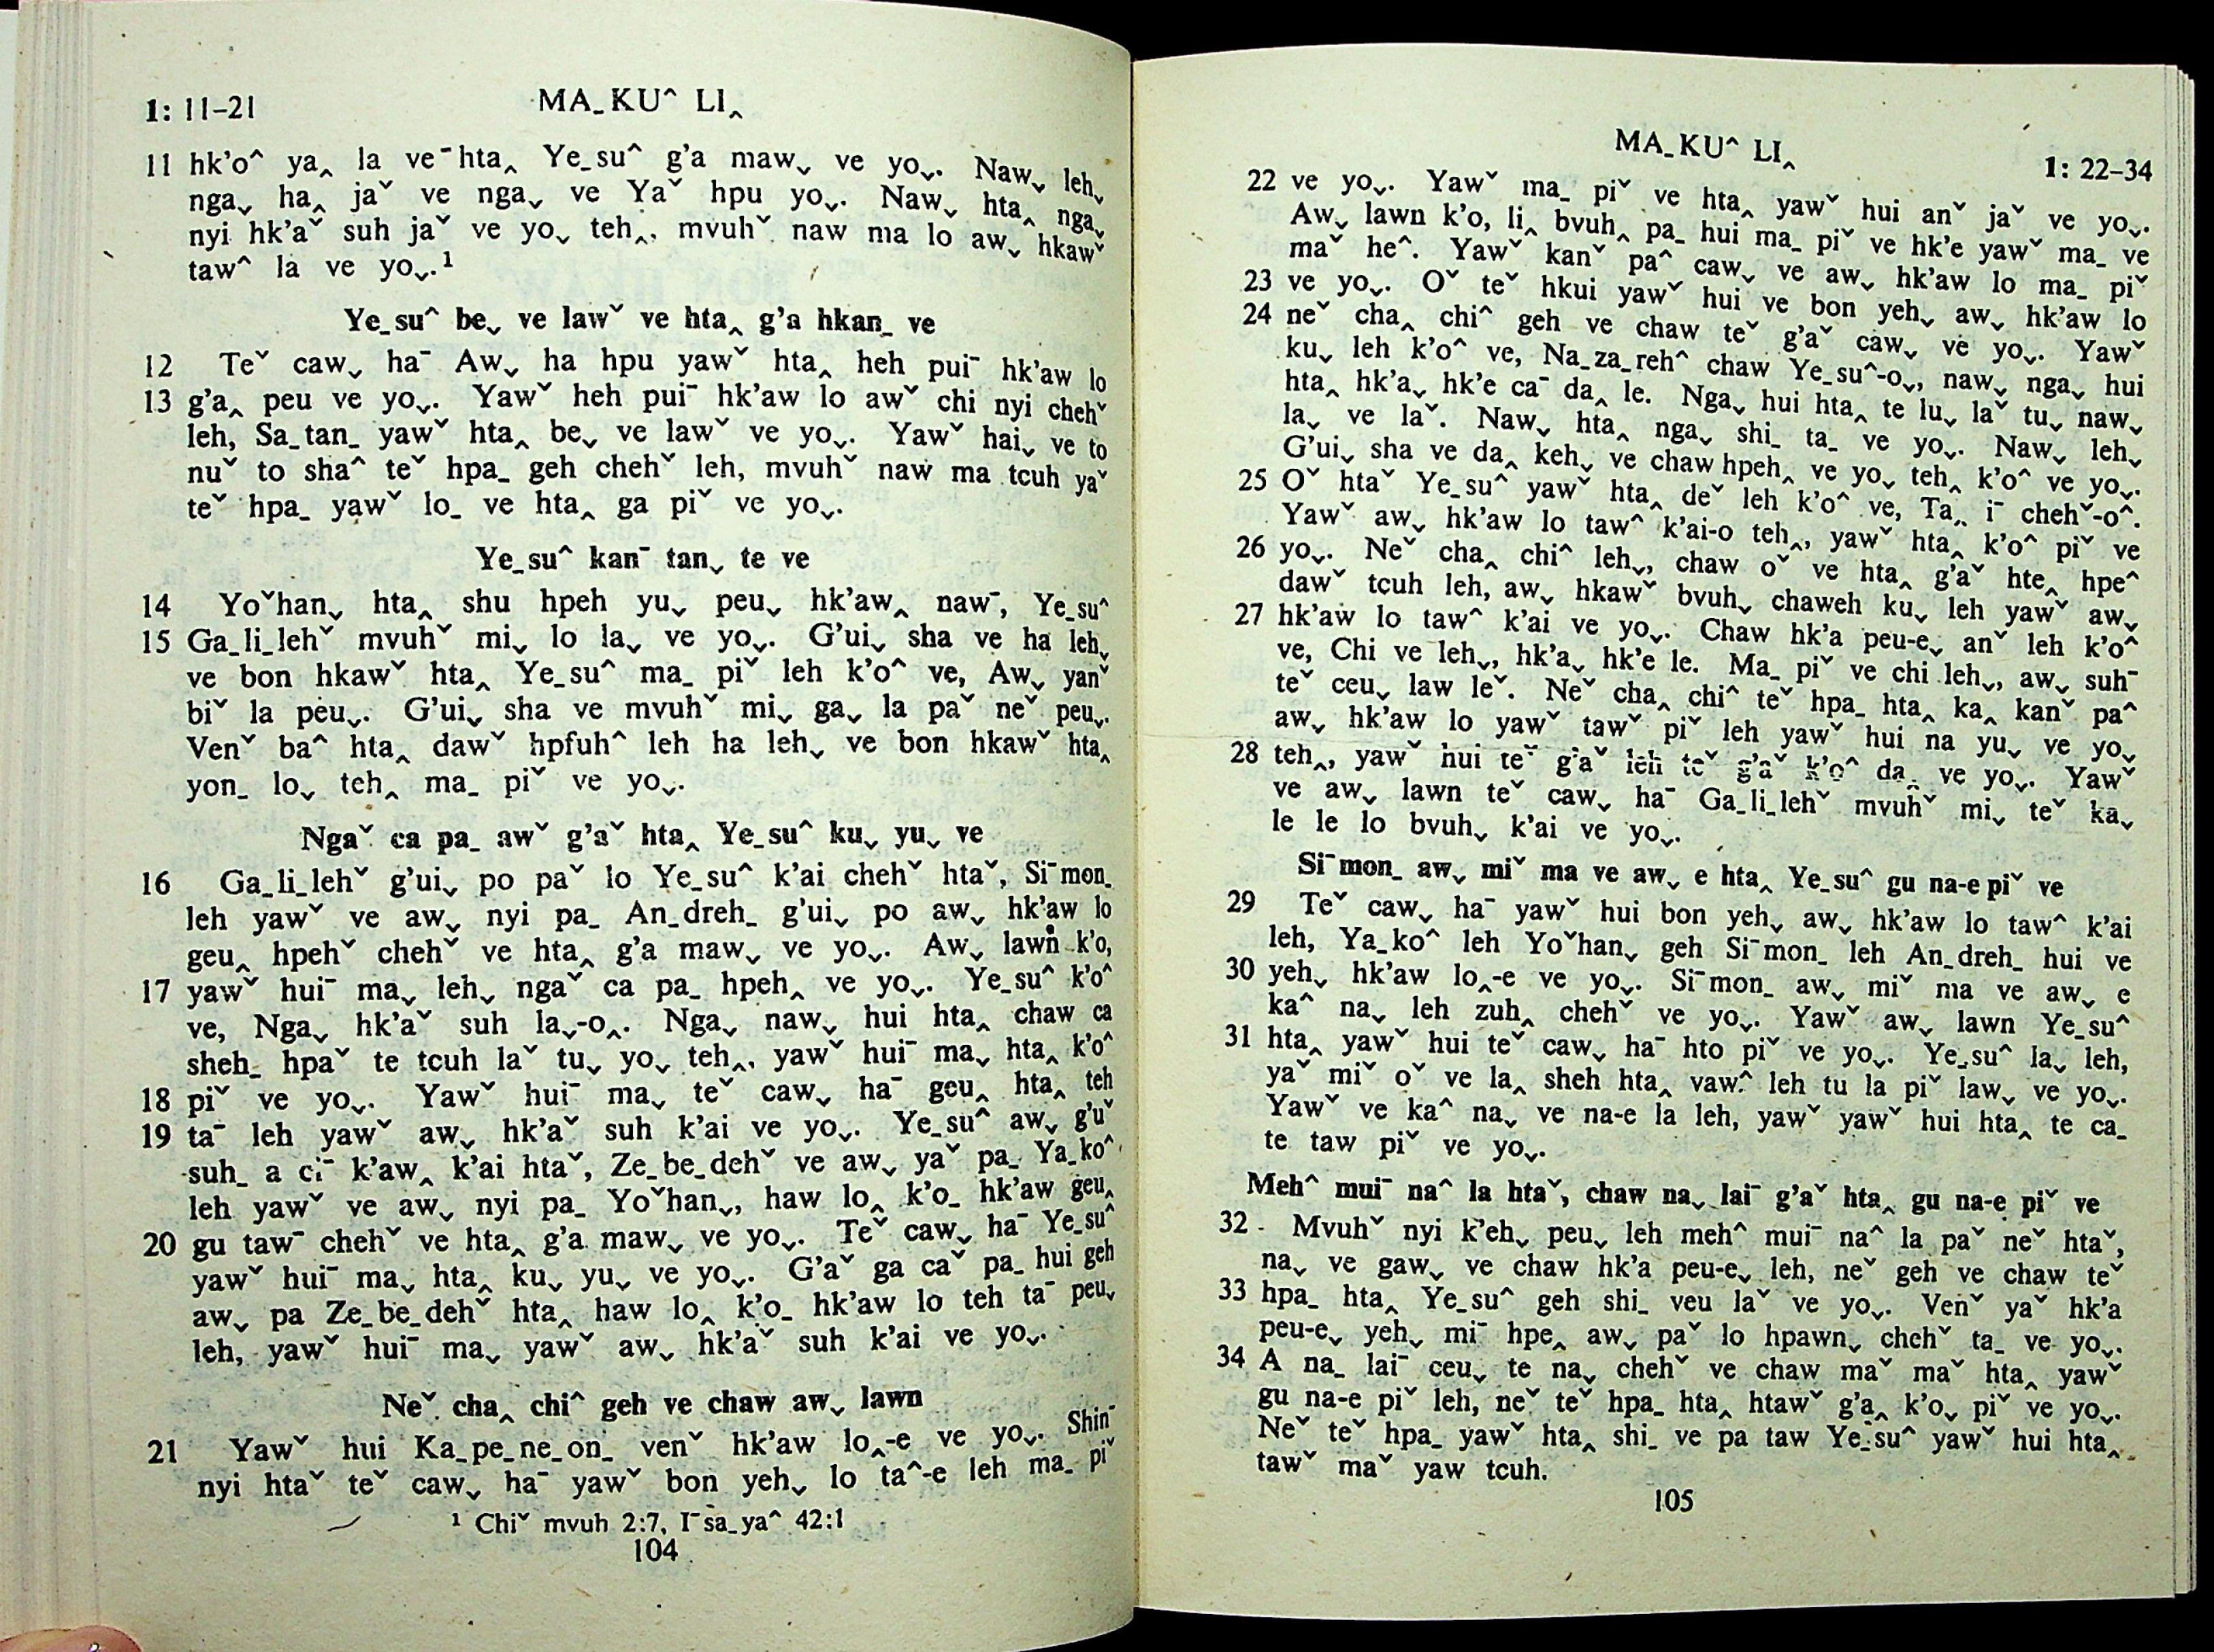 1: 11–21
MA_KU^ LI‸
11 hk'o^ ya‸ la ve¯ hta‸ Ye_su^ g'a mawˬ ve yoˬ. Nawˬ lehˬ
ngaˬ ha‸ jaˇ ve ngaˬ ve Yaˇ hpu yoˬ. Nawˬ hta‸ ngaˬ
nyi hk'aˇ suh jaˇ ve yoˬ teh‸, mvuhˇ naw ma lo awˬ hkawˇ
taw^ la ve yoˬ.¹
Ye_su^ beˬ ve lawˇ ve hta‸ g'a hkan_ ve
12 Teˇ cawˬ ha¯ Awˬ ha hpu yawˇ hta‸ heh pui¯ hk'aw lo
13 g'a‸ peu ve yoˬ. Yawˇ heh pui¯ hk'aw lo awˇ chi nyi chehˇ
leh, Sa_tan_ yawˇ hta‸ beˬ ve lawˇ ve yoˬ. Yawˇ haiˬ ve to
nuˇ to sha^ teˇ hpa_ geh chehˇ leh, mvuhˇ naw ma tcuh yaˇ
teˇ hpa_ yawˇ lo_ ve hta‸ ga piˇ ve yoˬ.
Ye_su^ kan¯ tanˬ te ve
14 Yoˇhanˬ hta‸ shu hpeh yuˬ peuˬ hk'aw‸ naw¯, Ye_su^
15 Ga_li_lehˇ mvuhˇ miˬ lo laˬ ve yoˬ. G'uiˬ sha ve ha lehˬ
ve bon hkawˇ hta‸ Ye_su^ ma_ piˇ leh k'o^ ve, Awˬ yanˇ
biˇ la peuˬ. G'uiˬ sha ve mvuhˇ miˬ gaˬ la paˇ neˇ peuˬ.
Venˇ ba^ hta‸ dawˇ hpfuh^ leh ha lehˬ ve bon hkawˇ hta‸
yon_ loˬ teh‸ ma_ piˇ ve yoˬ.
Ngaˇ ca pa_ awˇ g'aˇ hta‸ Ye_su^ kuˬ yuˬ ve
16 Ga_li_lehˇ g'uiˬ po paˇ lo Ye_su^ k'ai chehˇ htaˇ, Si¯mon_
leh yawˇ ve awˬ nyi pa_ An_dreh_ g'uiˬ po awˬ hk'aw lo
geu‸ hpehˇ chehˇ ve hta‸ g'a mawˬ ve yoˬ. Awˬ lawn k'o,
17 yawˇ hui¯ maˬ lehˬ ngaˇ ca pa_ hpeh‸ ve yoˬ. Ye_su^ k'o^
ve, Ngaˬ hk'aˇ suh laˬ-o‸. Ngaˬ nawˬ hui hta‸ chaw ca
sheh_ hpaˇ te tcuh laˇ tuˬ yoˬ teh‸, yawˇ hui¯ maˬ hta‸ k'o^
18 piˇ ve yoˬ. Yawˇ hui¯ maˬ teˇ cawˬ ha¯ geu‸ hta‸ teh
19 ta¯ leh yawˇ awˬ hk'aˇ suh k'ai ve yoˬ. Ye_su^ awˬ g'uˇ
suh_ a ci¯ k'aw‸ k'ai htaˇ, Ze_be_dehˇ ve awˬ yaˇ pa_ Ya_ko^
leh yawˇ ve awˬ nyi pa_ Yoˇhanˬ, haw lo‸ k'o_ hk'aw geu‸
20 gu taw¯ chehˇ ve hta‸ g'a mawˬ ve yoˬ. Teˇ cawˬ ha¯ Ye_su^
yawˇ hui¯ maˬ hta‸ kuˬ yuˬ ve yoˬ. G'aˇ ga caˇ pa_ hui geh
awˬ pa Ze_be_dehˇ hta‸ haw lo‸ k'o_ hk'aw lo teh ta¯ peuˬ
leh, yawˇ hui¯ maˬ yawˇ awˬ hk'aˇ suh k'ai ve yoˬ.
Neˇ cha‸ chi^ geh ve chaw awˬ lawn
21 Yawˇ hui Ka_pe_ne_on_ venˇ hk'aw lo‸-e ve yoˬ. Shin¯
nyi htaˇ teˇ cawˬ ha¯ yawˇ bon yehˬ lo ta^-e leh ma_ piˇ
¹ Chiˇ mvuh 2:7, I¯sa_ya^ 42:1
104
MA_KU^ LI‸
1: 22–34
22 ve yoˬ. Yawˇ ma_ piˇ ve hta‸ yawˇ hui anˇ jaˇ ve yoˬ.
Awˬ lawn k'o, li‸ bvuh‸ pa_ hui ma_ piˇ ve hk'e yawˇ ma_ ve
maˇ he^. Yawˇ kanˇ pa^ cawˬ ve awˬ hk'aw lo ma_ piˇ
23 ve yoˬ. Oˇ teˇ hkui yawˇ hui ve bon yehˬ awˬ hk'aw lo
24 neˇ cha‸ chi^ geh ve chaw teˇ g'aˇ cawˬ ve yoˬ. Yawˇ
kuˬ leh k'o^ ve, Na_za_reh^ chaw Ye_su^-oˬ, nawˬ ngaˬ hui
hta‸ hk'aˬ hk'e ca¯ da‸ le. Ngaˬ hui hta‸ te luˬ laˇ tuˬ nawˬ
laˬ ve laˇ. Nawˬ hta‸ ngaˬ shi_ ta_ ve yoˬ. Nawˬ lehˬ
G'uiˬ sha ve da‸ kehˬ ve chaw hpeh‸ ve yoˬ teh‸ k'o^ ve yoˬ.
25 Oˇ htaˇ Ye_su^ yawˇ hta‸ deˇ leh k'o^ ve, Ta‸ i¯ chehˇ-o^.
Yawˇ awˬ hk'aw lo taw^ k'ai-o teh‸, yawˇ hta‸ k'o^ piˇ ve
26 yoˬ. Neˇ cha‸ chi^ lehˬ, chaw oˇ ve hta‸ g'aˇ hte‸ hpe^
dawˇ tcuh leh, awˬ hkawˇ bvuhˬ chaweh kuˬ leh yawˇ awˬ
27 hk'aw lo taw^ k'ai ve yoˬ. Chaw hk'a peu-eˬ anˇ leh k'o^
ve, Chi ve lehˬ, hk'aˬ hk'e le. Ma_ piˇ ve chi lehˬ, awˬ suh¯
teˇ ceuˬ law leˇ. Neˇ cha‸ chi^ teˇ hpa_ hta‸ ka‸ kanˇ pa^
awˬ hk'aw lo yawˇ tawˇ piˇ leh yawˇ hui na yuˬ ve yoˬ
28 teh‸, yawˇ hui teˇ g'aˇ leh teˇ g'aˇ k'o^ da‸ ve yoˬ. Yawˇ
ve awˬ lawn teˇ cawˬ ha¯ Ga_li_lehˇ mvuhˇ miˬ teˇ kaˬ
le le lo bvuhˬ k'ai ve yoˬ.
Si¯mon_ awˬ miˇ ma ve awˬ e hta‸ Ye_su^ gu na-e piˇ ve
29 Teˇ cawˬ ha¯ yawˇ hui bon yehˬ awˬ hk'aw lo taw^ k'ai
leh, Ya_ko^ leh Yoˇhanˬ geh Si¯mon_ leh An_dreh_ hui ve
30 yehˬ hk'aw lo‸-e ve yoˬ. Si¯mon_ awˬ miˇ ma ve awˬ e
ka^ naˬ leh zuh‸ chehˇ ve yoˬ. Yawˇ awˬ lawn Ye_su^
31 hta‸ yawˇ hui teˇ cawˬ ha¯ hto piˇ ve yoˬ. Ye_su^ laˬ leh,
yaˇ miˇ oˇ ve la‸ sheh hta‸ vaw^ leh tu la piˇ lawˬ ve yoˬ.
Yawˇ ve ka^ naˬ ve na-e la leh, yawˇ yawˇ hui hta‸ te ca_
te taw piˇ ve yoˬ.
Meh^ mui¯ na^ la htaˇ, chaw naˬ lai¯ g'aˇ hta‸ gu na-e piˇ ve
32 Mvuhˇ nyi k'ehˬ peuˬ leh meh^ mui¯ na^ la paˇ neˇ htaˇ,
naˬ ve gawˬ ve chaw hk'a peu-eˬ leh, neˇ geh ve chaw teˇ
33 hpa_ hta‸ Ye_su^ geh shi_ veu laˇ ve yoˬ. Venˇ yaˇ hk'a
peu-eˬ yehˬ mi¯ hpe‸ awˬ paˇ lo hpawnˬ chehˇ ta_ ve yoˬ.
34 A na_ lai¯ ceuˬ te naˬ chehˇ ve chaw maˇ maˇ hta‸ yawˇ
gu na-e piˇ leh, neˇ teˇ hpa_ hta‸ htawˇ g'a‸ k'oˬ piˇ ve yoˬ.
Neˇ teˇ hpa_ yawˇ hta‸ shi_ ve pa taw Ye_su^ yawˇ hui hta‸
tawˇ maˇ yaw tcuh.
105